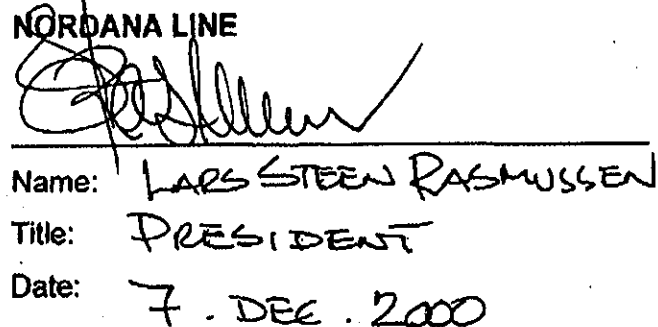 NORDANA LINE
Name: LARS STEEN RASMUSSEN
Title: PRESIDENT
Date: 7. DEC. 2000